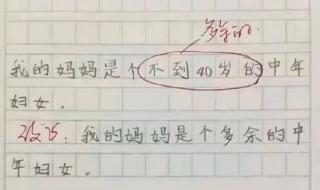 多余的.
我的妈妈是个不到40岁的中年
妇女.
改为:我的妈妈是个多余的中
年妇女。